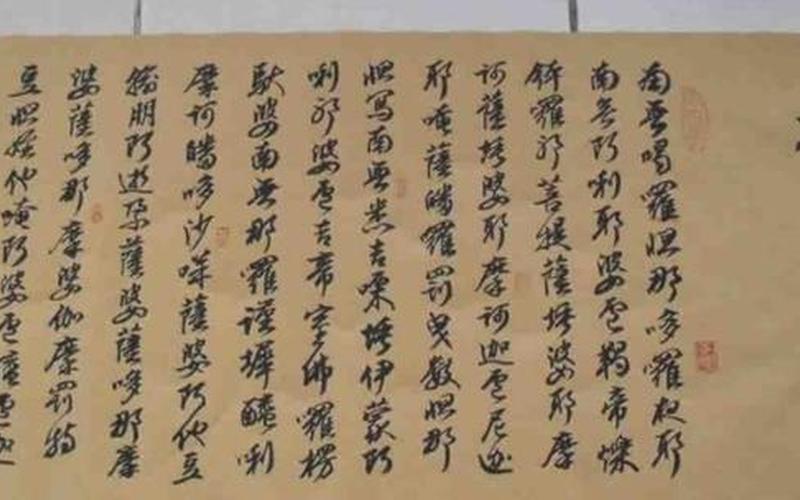 南無喝羅怛那哆羅夜耶
南無阿唎耶婆盧羯帝爍
鉢羅耶菩提薩埵婆耶摩
訶薩埵婆耶摩訶迦盧尼迦
耶唵薩皤羅罰曳數怛那
怛寫南無悉吉嘌埵伊蒙阿
唎耶婆盧吉帝室佛羅楞
馱婆南無那羅謹墀醯唎
摩訶皤哆沙咩薩婆阿他豆
輸朋阿逝孕薩婆薩哆那摩
婆薩哆那摩婆伽摩罰特
豆怛姪他唵阿婆盧醯盧迦